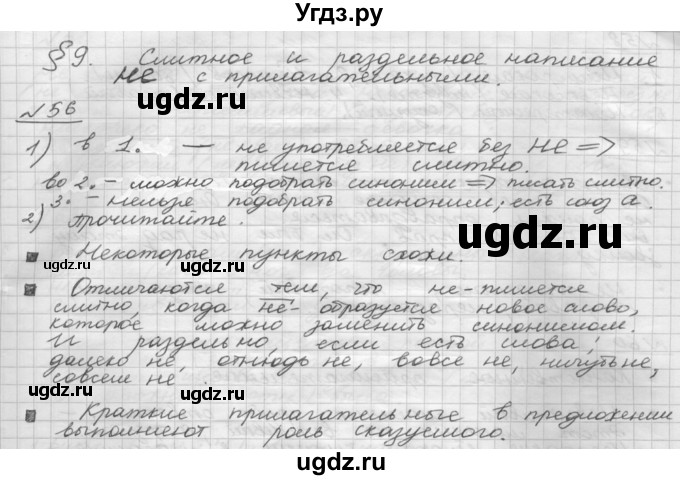 Угдз.ру
§9. Слитное и раздельное написание
НЕ с прилагательными.
угдз.ru
№56
1) в 1. — не употребляется без НЕ =>
пишется слитно.
во 2. - можно подобрать синоним => писать слитно.
3. - нельзя подобрать синоним; есть союз а.
2) Прочитайте.
угдз.ru
Некоторые пункты схожи.
угдз.ru
Отличаются тем, что не-пишется
слитно, когда не- образуется новое слово,
которое можно заменить синонимом.
И раздельно, если есть слова:
далеко не, отнюдь не, вовсе не, ничуть не,
совсем не.
угдз.ru
Краткие прилагательные в предложении
выполняют роль сказуемого.
угдз.ru